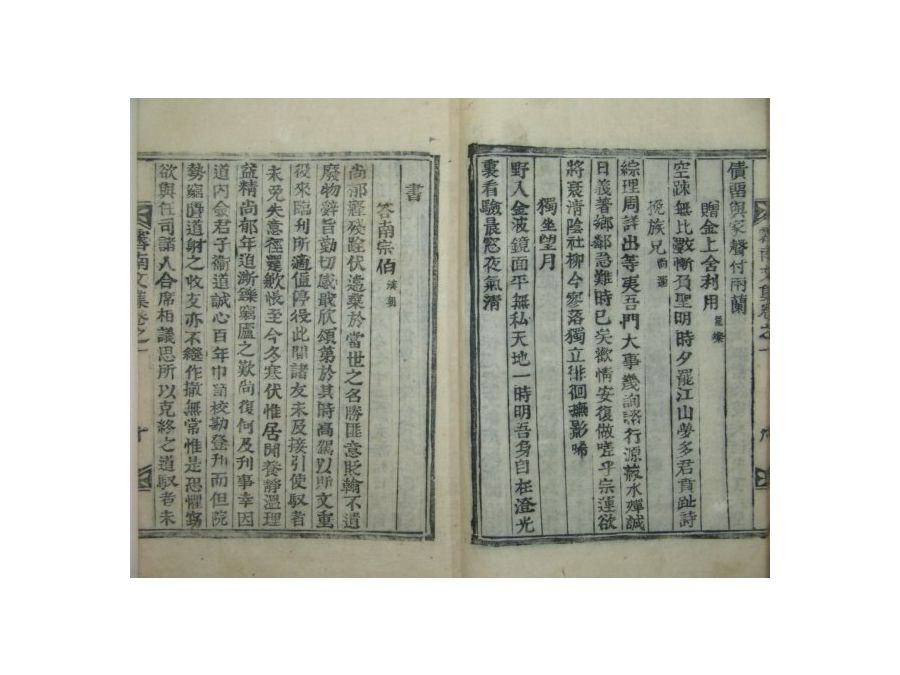 債留與家聲付兩蘭
贈金上舍利用
空疎無比數慚負聖明時夕罷江山夢多君賁趾詩
挽族兄
綜理周詳出等夷吾門大事幾詢諮行源菽水殫誠
日義著鄉鄰急難時已矣歡情安復做嗟乎宗蓮欲
將衰清陰社柳今寥落獨立徘徊撫影唏
獨坐望月
野入金波鏡面平無私天地一時明吾身自在澄光
裏看驗晨窓夜氣清
南文集卷之一
書
答南宗伯
尚郁癃殘陰伏遠棄於當世之名勝匪意貺翰不遺
廢物辭旨勤切感戢欣頌第於其時高駕以斯文重
役來臨刊所適值停役此間諸友未及接引使馭者
未免失意徑還歉悵至今冬寒伏惟居閒養靜溫理
益精尚郁年迫漸鑠窮廬之歎尚復何及刊事幸因
道內僉君子衛道誠心百年巾誦校勘登刊而但院
勢窮時道射之收支亦不繼作撤無常惟是恐懼竊
欲與任司諸人合席相議思所以克終之道馭者未
南文集卷之一
十